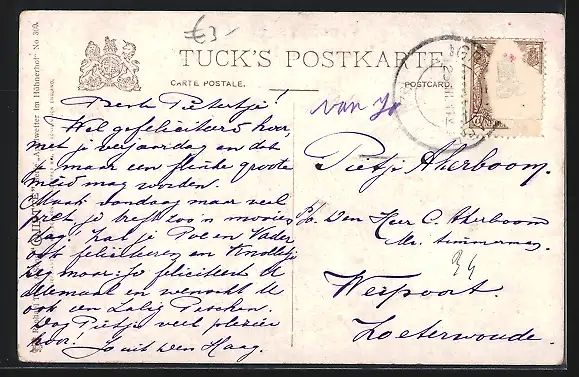 €3-
TUCK'S POSTKARTE
CARTE POSTALE.
POSTCARD.
Beste Pietertje!
Wel gefeliciteerd hoor,
met je verjaardag en dat
je maar een flinke groote
meid mag worden.
Maak vandaag maar veel
pret, je treft zoo'n mooien
dag, hat je Poe en Vader
ook feliciteeren en Knelletje
Zeg maar: Jo feliciteert je
allemaal en wenscht je
ook een Zalig Paschen.
Dag Pietje veel plezier
hoor! Jo uit Den Haag.
van Jo
Pietje Akerboom.
P/a. Den Heer C. Akerboom
Mr. timmerman.
34
Weipoort.
Zoeterwoude.
wetter im Hühnerhof" No 309.